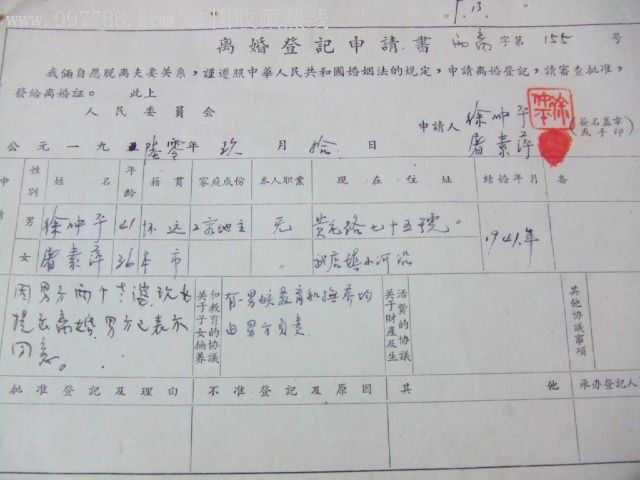 www.997788.com
5.13
离婚登記申請書 字第 155 号
我倆自愿脱离夫妻关系,謹遵照中華人民共和國婚姻法的規定,申請离婚登記,請審查批准,
發給离婚証。 此上
人民委員会
申請人 徐坤平 (簽名盖章或手印)
屠素萍
公元一九陸零年 玖 月 拾 日
申請 性別 姓名 年齡 籍貫 家庭成份 本人职業 現在住址 結婚年月 备
男 徐坤平 41 怀远 地主 无 黄 路七十五號 1941年
女 屠素萍 36 本市 店鎮小河沿
因男方两个 婆 現 女
提出离婚,男方已表示
同意。
关于子女撫养和教育的协議
有一男孩教育和撫养均
由男方負責
关于財產及生活費的协議
其他协議事項
批准登記及理由 不准登記及原因 其他 承办登記人